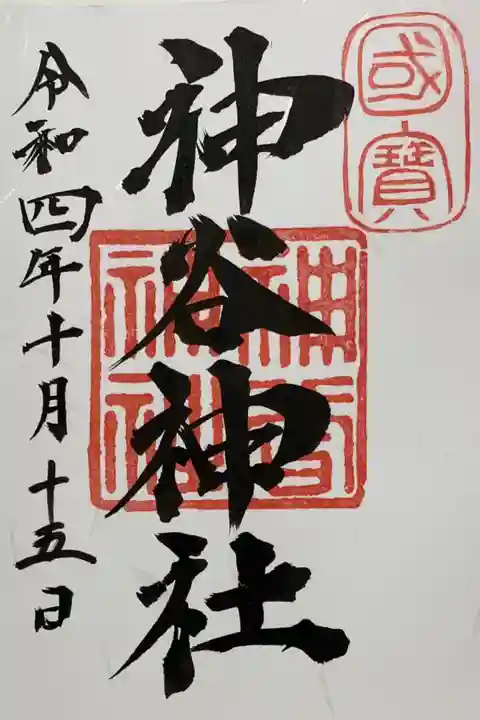 國寶
神谷神社
神谷神社
令和四年十月十五日